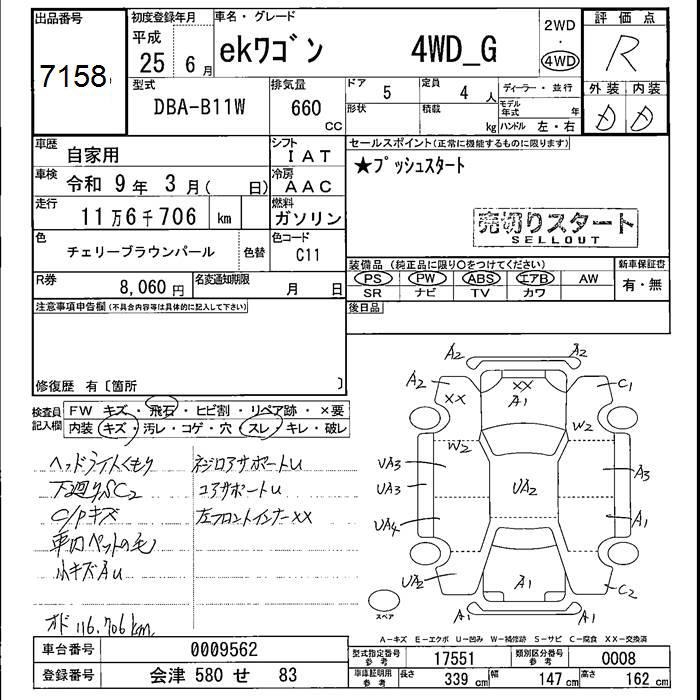 出品番号
7158
初度登録年月
平成
25 6 月
車名・グレード
ekワゴン 4WD_G
2WD
・
4WD
評価点
R
外装 内装
D D
型式
DBA-B11W
排気量
660
CC
ドア
5
定員
4 人
形状
積載
kg
ディーラー・並行
モデル年式 年
ハンドル 左・右
車歴
自家用
シフト
IAT
車検
令和 9 年 3 月( 日)
冷房
AAC
走行
11万6千706 km
燃料
ガソリン
色
チェリーブラウンパール
色替
色コード
C11
R券
8,060 円
名変通知期限
月 日
セールスポイント(正常に機能するものに限ります)
★プッシュスタート
売切りスタート
SELLOUT
装備品 (純正品に限り○をつけてください)
PS PW ABS エアB AW
SR ナビ TV カワ
新車保証書
有・無
後日品
注意事項申告欄(不具合内容等は具体的に記入して下さい)
修復歴 有〔箇所 〕
検査員
記入欄
FW キズ・飛石・ヒビ割・リペア跡・×要
内装 キズ・汚レ・コゲ・穴・スレ・キレ・破レ
ヘッドライトくもり
下廻りSC2
C/Pキズ
車内ペットの毛
小キズAU
オド 116,706km
ネジロアサポートU
コアサポートU
左フロントインナーXX
A2 A2
A2 XX
XX
A1
C1
W2 W2
UA3
UA3
UA4
UA2
UA2
A3
A1
A1
C2
A1 A1
スペア
A-キズ E-エクボ U-凹み W-補修跡 S-サビ C-腐食 XX-交換済
車台番号
0009562
登録番号
会津 580 せ 83
型式指定番号
参考
17551
類別区分番号
参考
0008
車庫証明用
参考
長さ
339 cm
幅
147 cm
高さ
162 cm